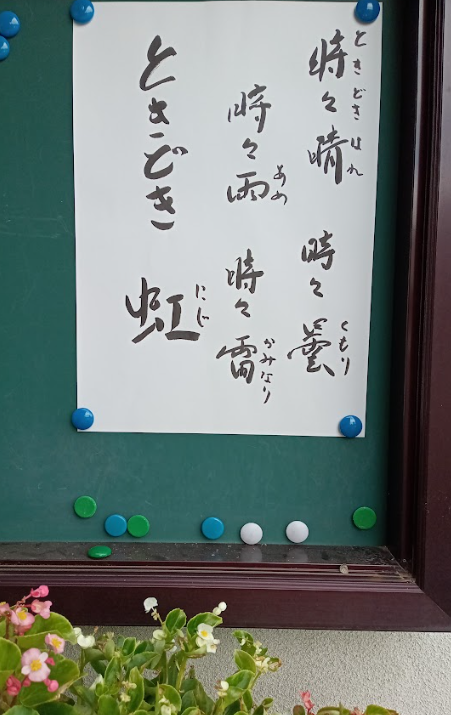 時々晴 時々曇
ときどきはれ くもり
時々雨 時々雷
あめ かみなり
ときどき 虹
にじ